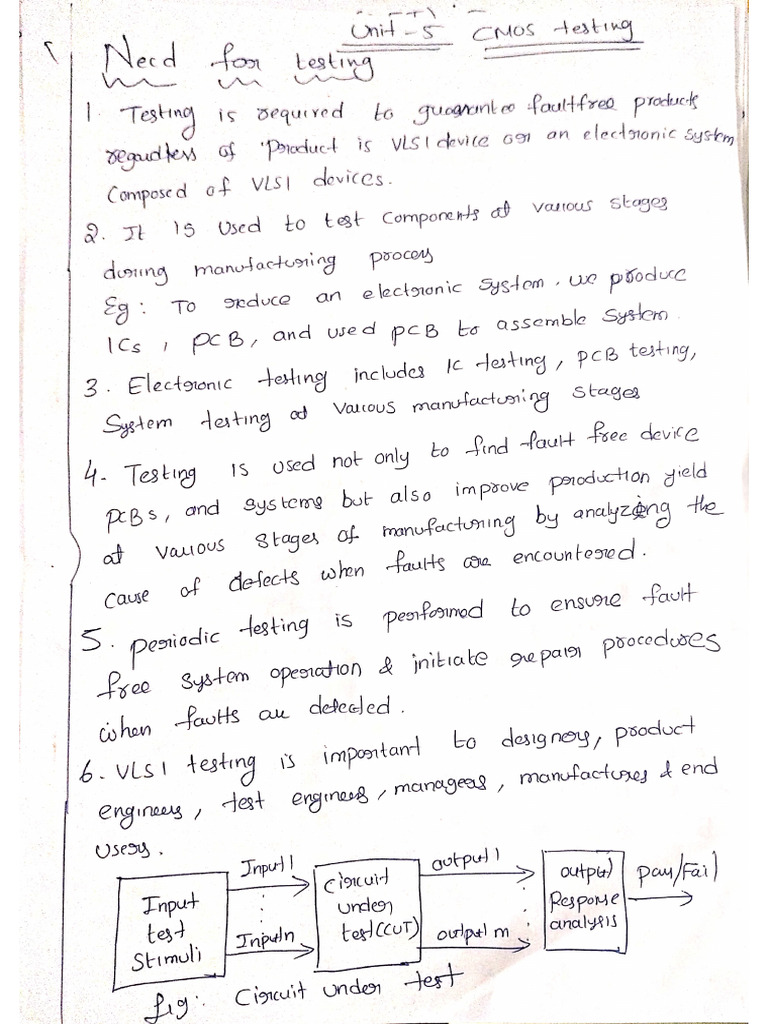 Unit-5 CMOS testing
Need for testing
1. Testing is required to guarantee faultfree products
regardless of product is VLSI device or an electronic system
composed of VLSI devices.
2. It is used to test components at various stages
during manufacturing process
Eg: To reduce an electronic system. we produce
ICs, PCB, and used PCB to assemble system.
3. Electronic testing includes IC testing, PCB testing,
System testing at various manufacturing stages
4. Testing is used not only to find fault free device
PCBs, and systems but also improve production yield
at various stages of manufacturing by analyzing the
cause of defects when faults are encountered.
5. periodic testing is performed to ensure fault
free system operation & initiate repair procedures
when faults are detected.
6. VLSI testing is important to designers, product
engineers, test engineers, managers, manufactures & end
users.
Input test Stimuli
Input 1
Input n
Circuit under test(CUT)
output 1
output m
output Response analysis
pass/Fail
fig: Circuit under test